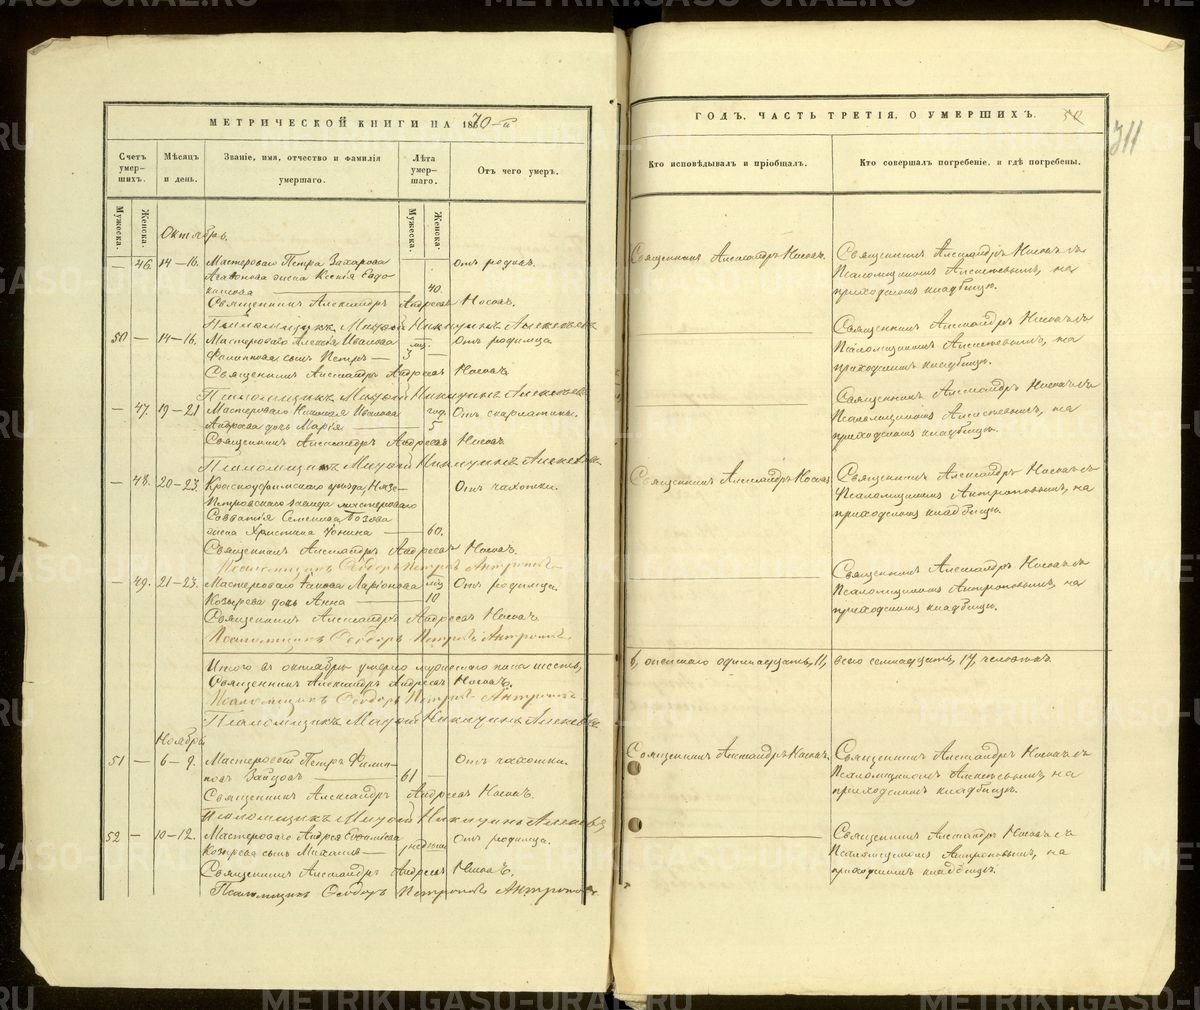 МЕТРИЧЕСКОЙ КНИГИ НА 1870-й
Счетъ умер-шихъ.
Мѣсяцъ и день.
Званіе, имя, отчество и фамилія умершаго.
Лѣта умер-шаго.
Отъ чего умеръ.
Мужеска.
Женска.
Мужеска.
Женска.
Октябрь.
— 46. 14–16. Мастероваго Петра Захарова
жена Ксенія Евдо-
кимова — 40. Отъ родовъ.
Священникъ Александръ Андреевъ Носовъ.
Псаломщикъ Никитинъ Алексѣевъ
50 — 14–16. Мастероваго Алексія Иванова
сынъ Петръ — 3 мц. — Отъ родимца
Священникъ Александръ Андреевъ Носовъ
Псаломщикъ Никитинъ Алексѣевъ
— 47. 19–21 Мастероваго Николая Иванова
дочь Марія — 5 год. Отъ скарлатины.
Священникъ Александръ Андреевъ Носовъ
Псаломщикъ Никитинъ Алексѣевъ
— 48. 20–23. Красноуфимскаго уѣзда, Нязе-
Петровскаго завода мастероваго
Савватія Семенова
жена Христина — 60. Отъ чахотки.
Священникъ Александръ Андреевъ Носовъ.
Псаломщикъ Ѳеодоръ Петровъ Антроповъ
— 49. 21–23. Мастероваго Ларіонова
Козырева дочь Анна — 10 мц. Отъ родимца.
Священникъ Александръ Андреевъ Носовъ.
Псаломщикъ Ѳеодоръ Петровъ Антроповъ.
Итого въ октябрѣ умерло мужескаго пола шесть,
Священникъ Александръ Андреевъ Носовъ.
Псаломщикъ Ѳеодоръ Петровъ Антроповъ
Псаломщикъ Никитинъ Алексѣевъ
Ноябрь
51 — 6–9. Мастеровой Петръ Филип-
повъ Зайцовъ — 61 — Отъ чахотки.
Священникъ Александръ Андреевъ Носовъ.
Псаломщикъ Никитинъ Алексѣевъ
52 — 10–12. Мастероваго Андрея
Козырева сынъ Михаилъ — 1 недѣли Отъ родимца.
Священникъ Александръ Андреевъ Носовъ.
Псаломщикъ Ѳеодоръ Петровъ Антроповъ.
ГОДЪ, ЧАСТЬ ТРЕТІЯ, О УМЕРШИХЪ.
311
Кто исповѣдывалъ и пріобщалъ.
Кто совершалъ погребеніе, и гдѣ погребены.
Священникъ Александръ Носовъ.
Священникъ Александръ Носовъ съ
Псаломщикомъ Алексѣевымъ, на
приходскомъ кладбищѣ.
Священникъ Александръ Носовъ съ
Псаломщикомъ Алексѣевымъ, на
приходскомъ кладбищѣ.
Священникъ Александръ Носовъ съ
Псаломщикомъ Алексѣевымъ, на
приходскомъ кладбищѣ.
Священникъ Александръ Носовъ
Священникъ Александръ Носовъ съ
Псаломщикомъ Антроповымъ, на
приходскомъ кладбищѣ.
Священникъ Александръ Носовъ съ
Псаломщикомъ Антроповымъ, на
приходскомъ кладбищѣ.
6, женскаго одиннадцать, 11, всего семнадцать, 17, человѣкъ
Священникъ Александръ Носовъ.
Священникъ Александръ Носовъ съ
Псаломщикомъ Алексѣевымъ на
приходскомъ кладбищѣ.
Священникъ Александръ Носовъ съ
Псаломщикомъ Антроповымъ, на
приходскомъ кладбищѣ.
METRIKI.GASO-URAL.RU